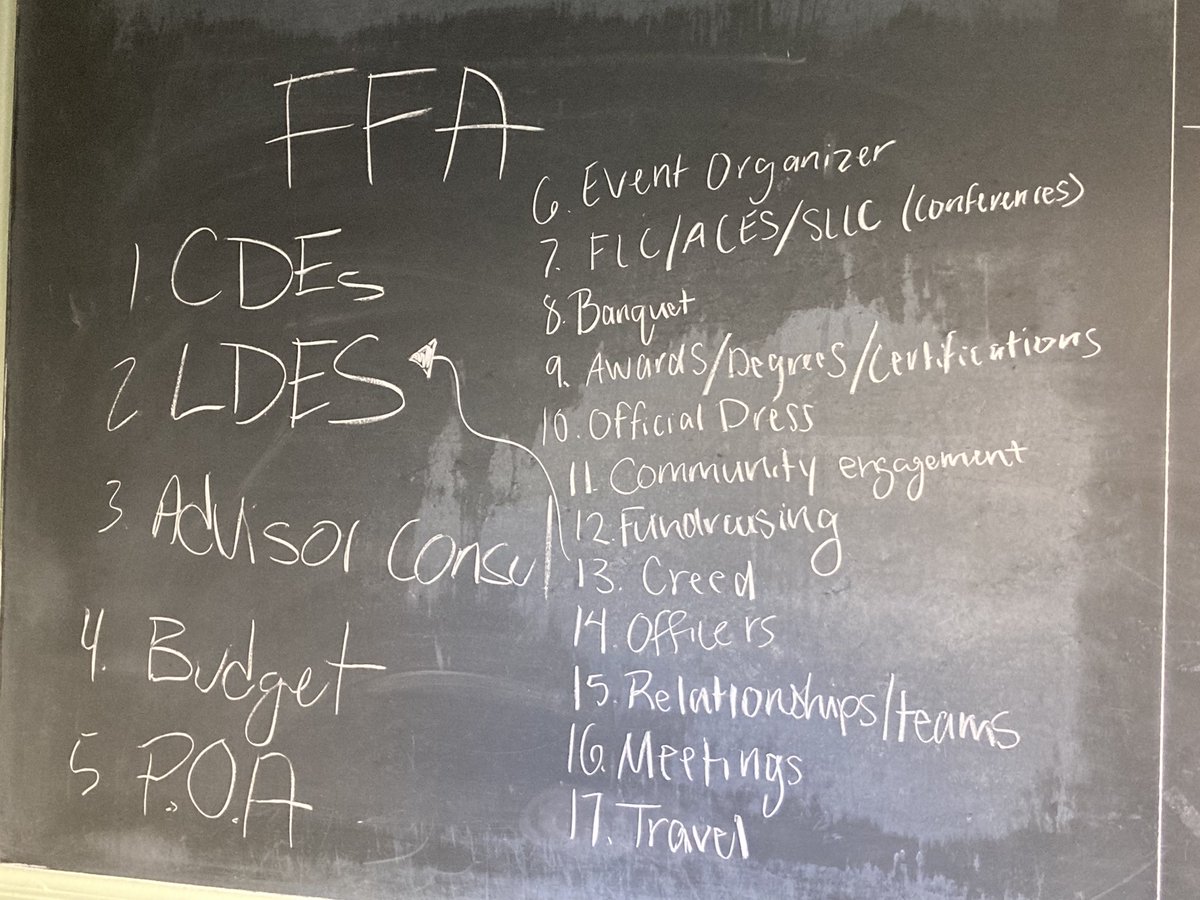 FFA
1 CDEs
2 LDES
3. Advisor Consul
4. Budget
5 P.O.A
6. Event Organizer
7. FLC/ACES/SLLC (conferences)
8. Banquet
9. Awards/Degrees/Certifications
10. Official Dress
11. Community engagement
12. Fundraising
13. Creed
14. Officers
15. Relationships/teams
16. Meetings
17. Travel